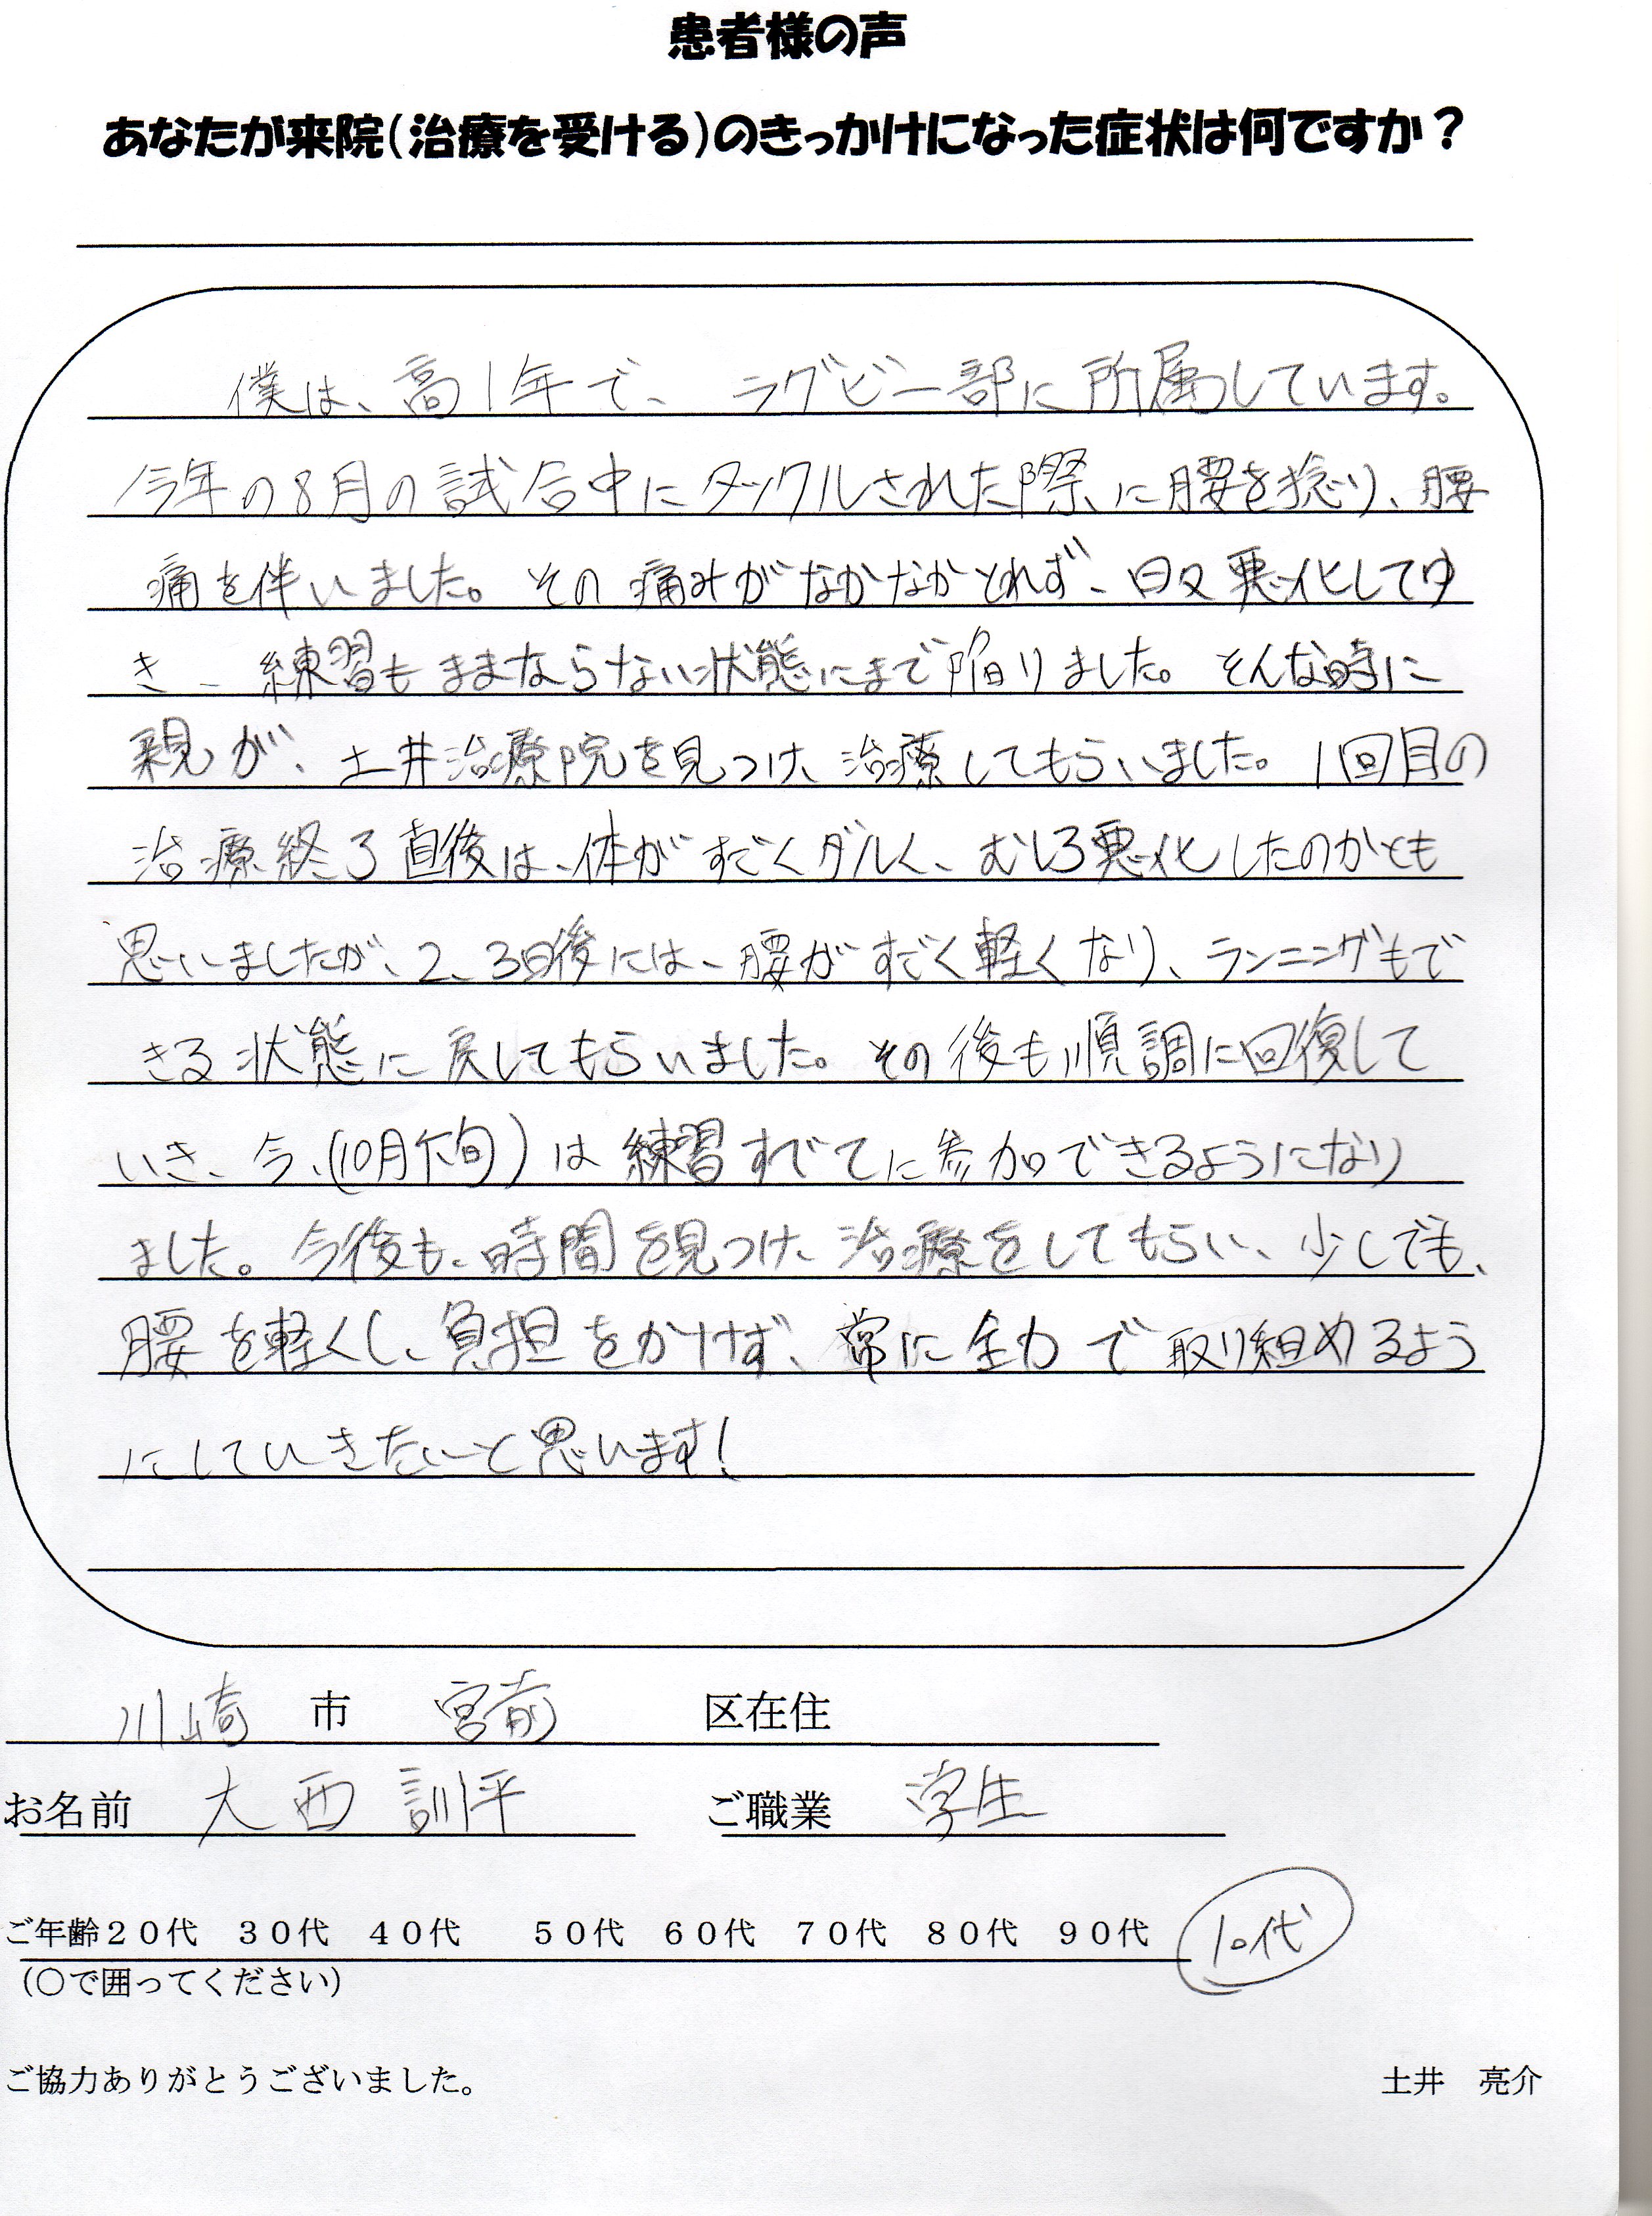 患者様の声
あなたが来院(治療を受ける)のきっかけになった症状は何ですか?
僕は、高1年で、ラグビー部に所属しています。
今年の8月の試合中にタックルされた際に腰を捻り、腰
痛を伴いました。その痛みがなかなかとれず、日々悪化してゆ
き、練習もままならない状態にまで陥りました。そんな時に
親が、土井治療院を見つけ、治療してもらいました。1回目の
治療終了直後は、体がすごくダルく、むしろ悪化したのかとも
思いましたが、2、3日後には、腰がすごく軽くなり、ランニングもで
きる状態に戻してもらいました。その後も順調に回復して
いき、今、(10月下旬)は練習すべてに参加できるようになり
ました。今後も、時間を見つけ、治療をしてもらい、少しでも、
腰を軽くし、負担をかけず、常に全力で取り組めるよう
にしていきたいと思います!
川崎 市 宮前 区在住
お名前 大西 訓平 ご職業 学生
ご年齢20代 30代 40代 50代 60代 70代 80代 90代 10代
(〇で囲ってください)
ご協力ありがとうございました。 土井 亮介